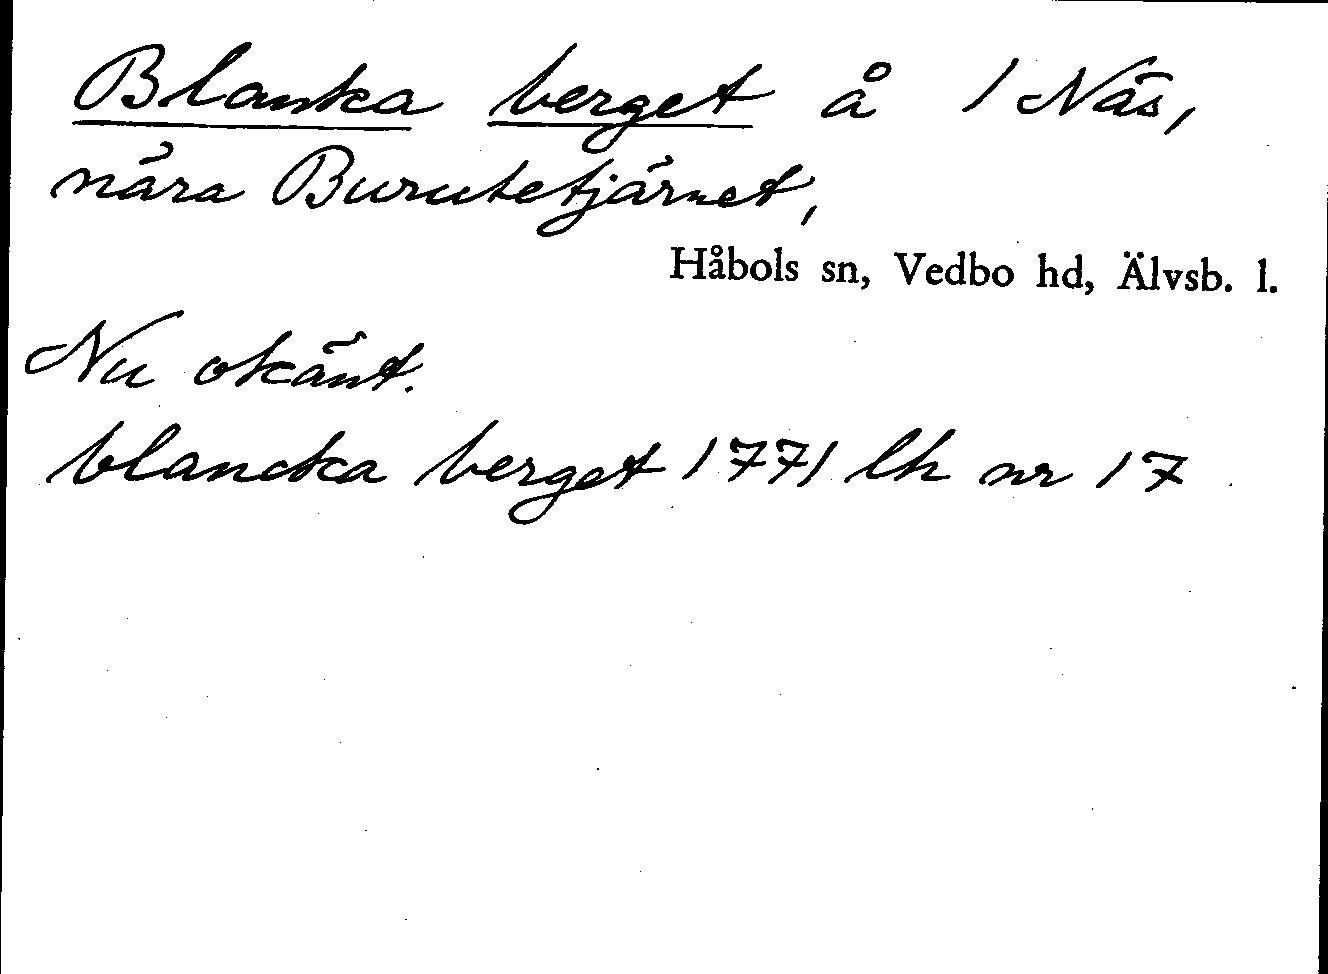 Blanka berget å 1 Näs,
nära Burutetjärnet,
Håbols sn, Vedbo hd, Älvsb. l.
Nu okänt.
blancka berget 1771 lh nr 17